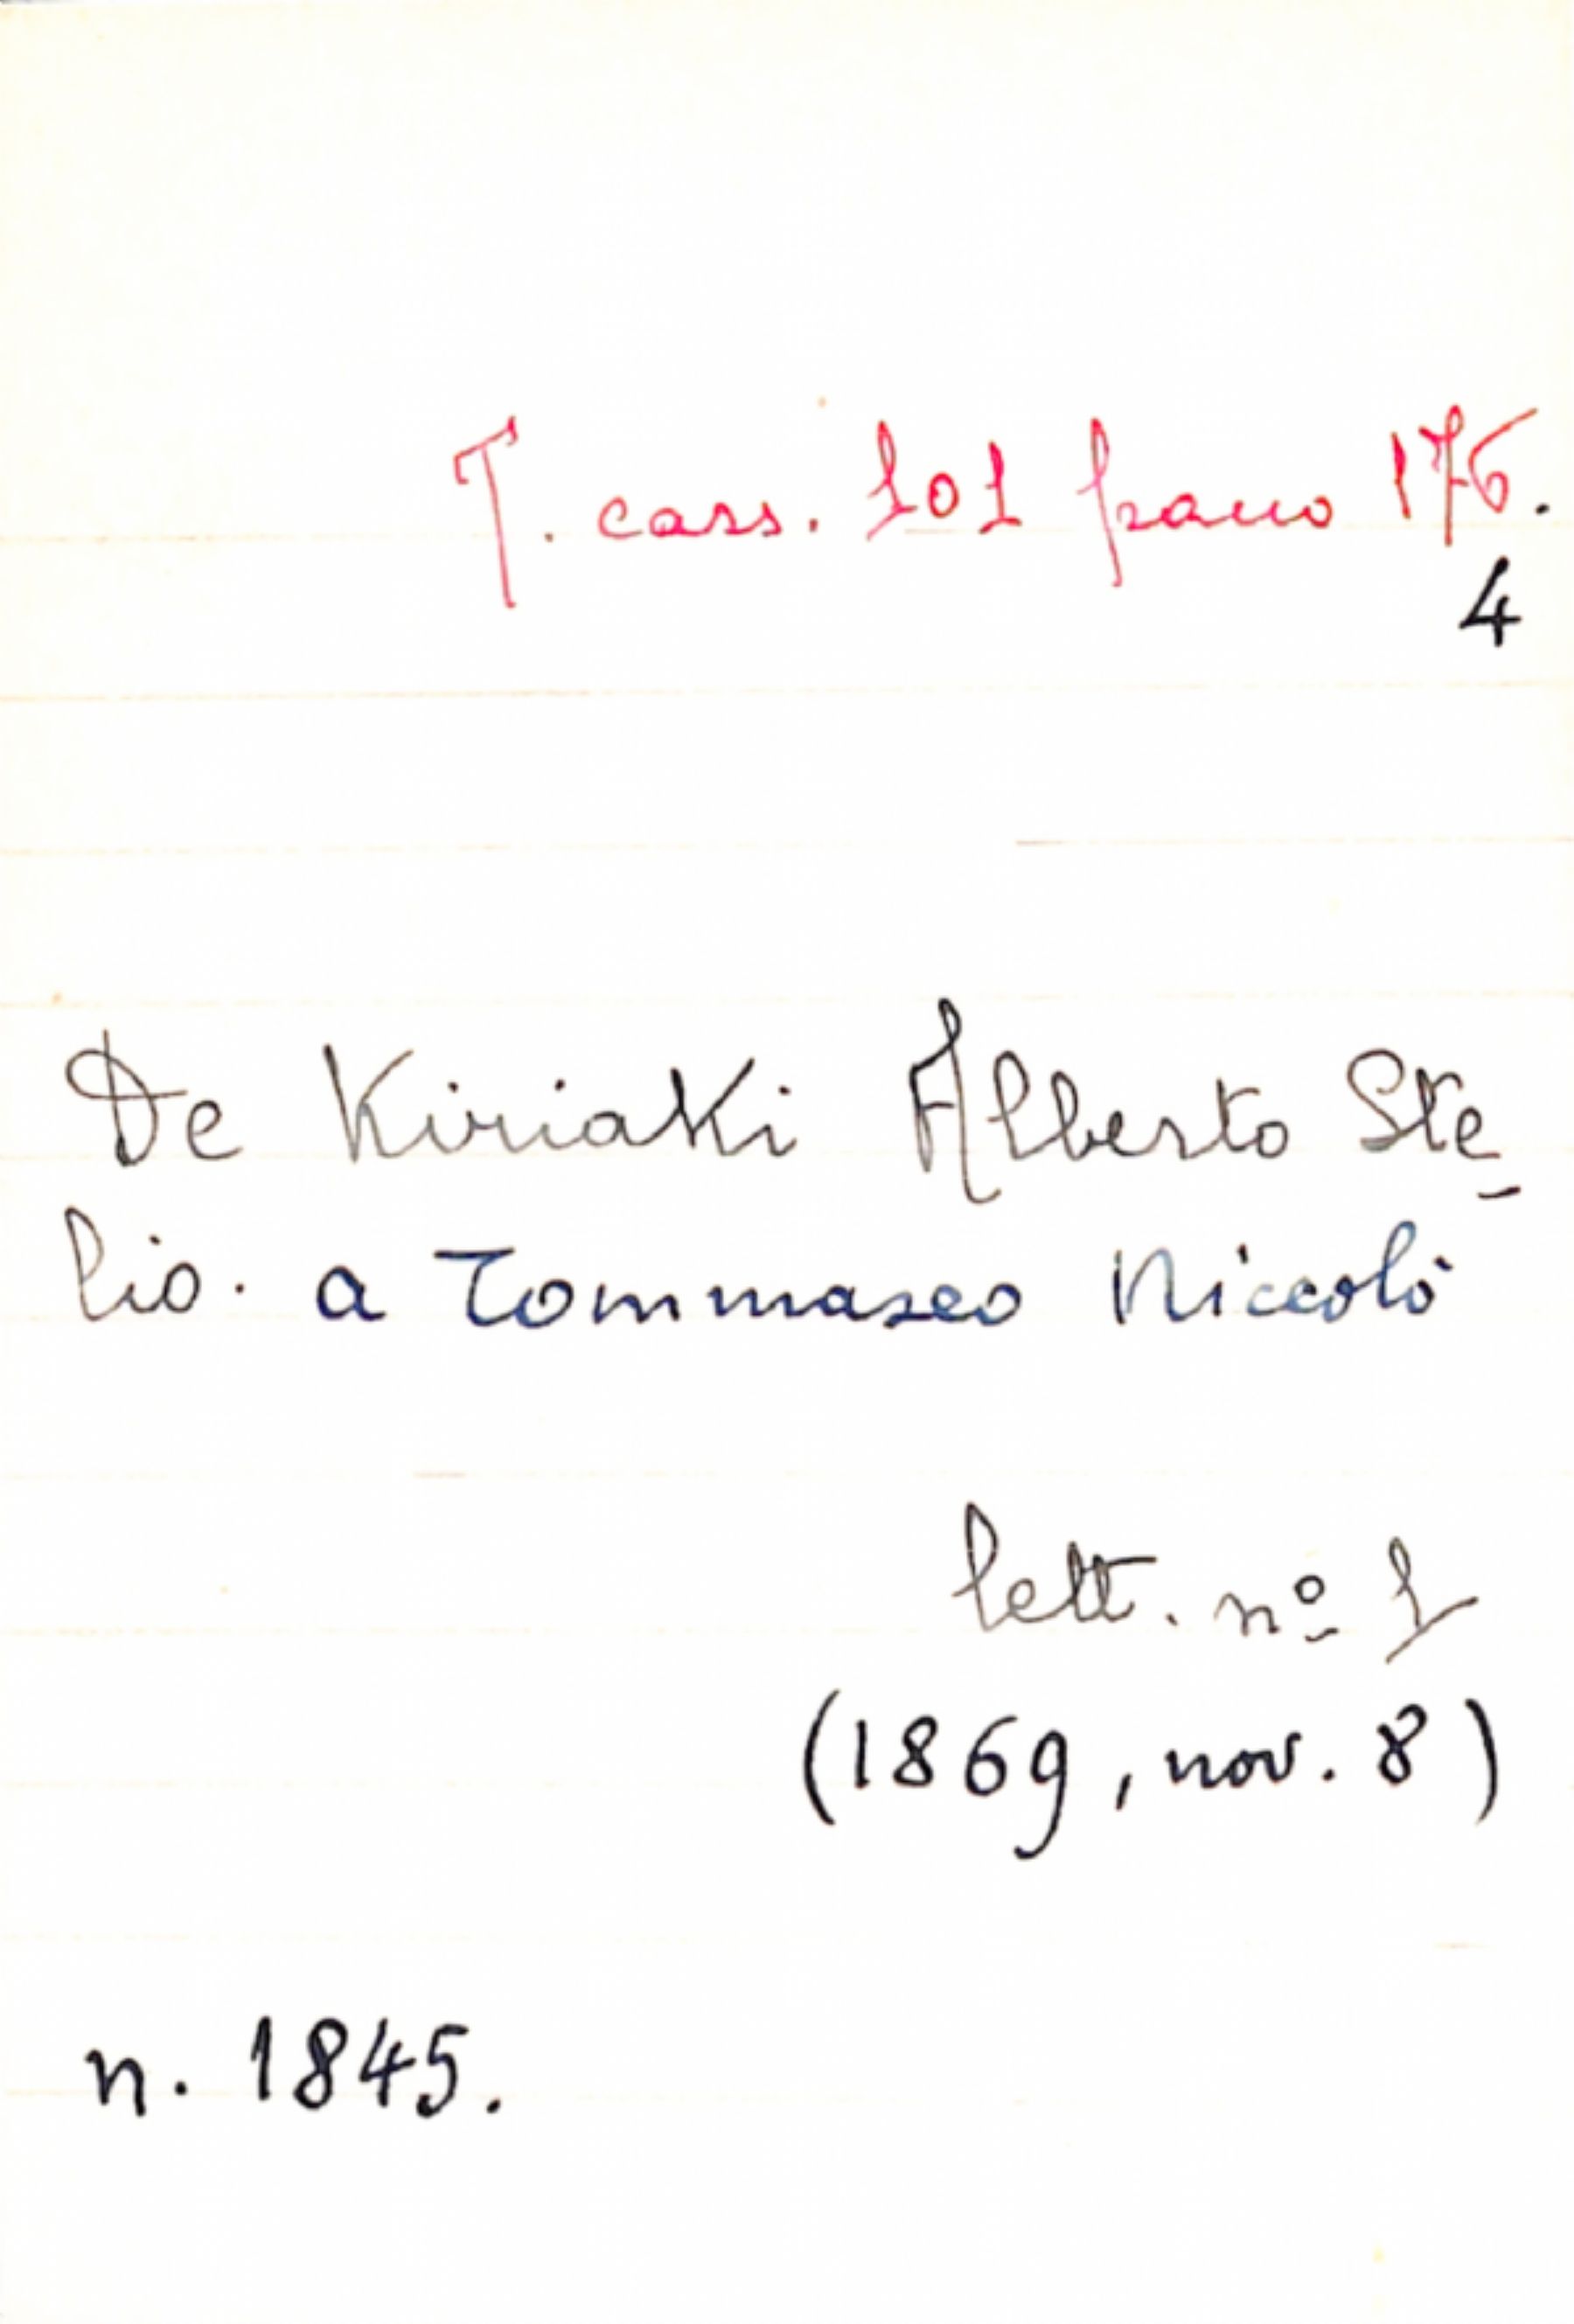 T. cass. 101 frano 176.
4
De Kiriaki Alberto Ste-
lio. a Tommaseo Niccolò
lett. nº 1
(1869, nov. 8)
n. 1845.